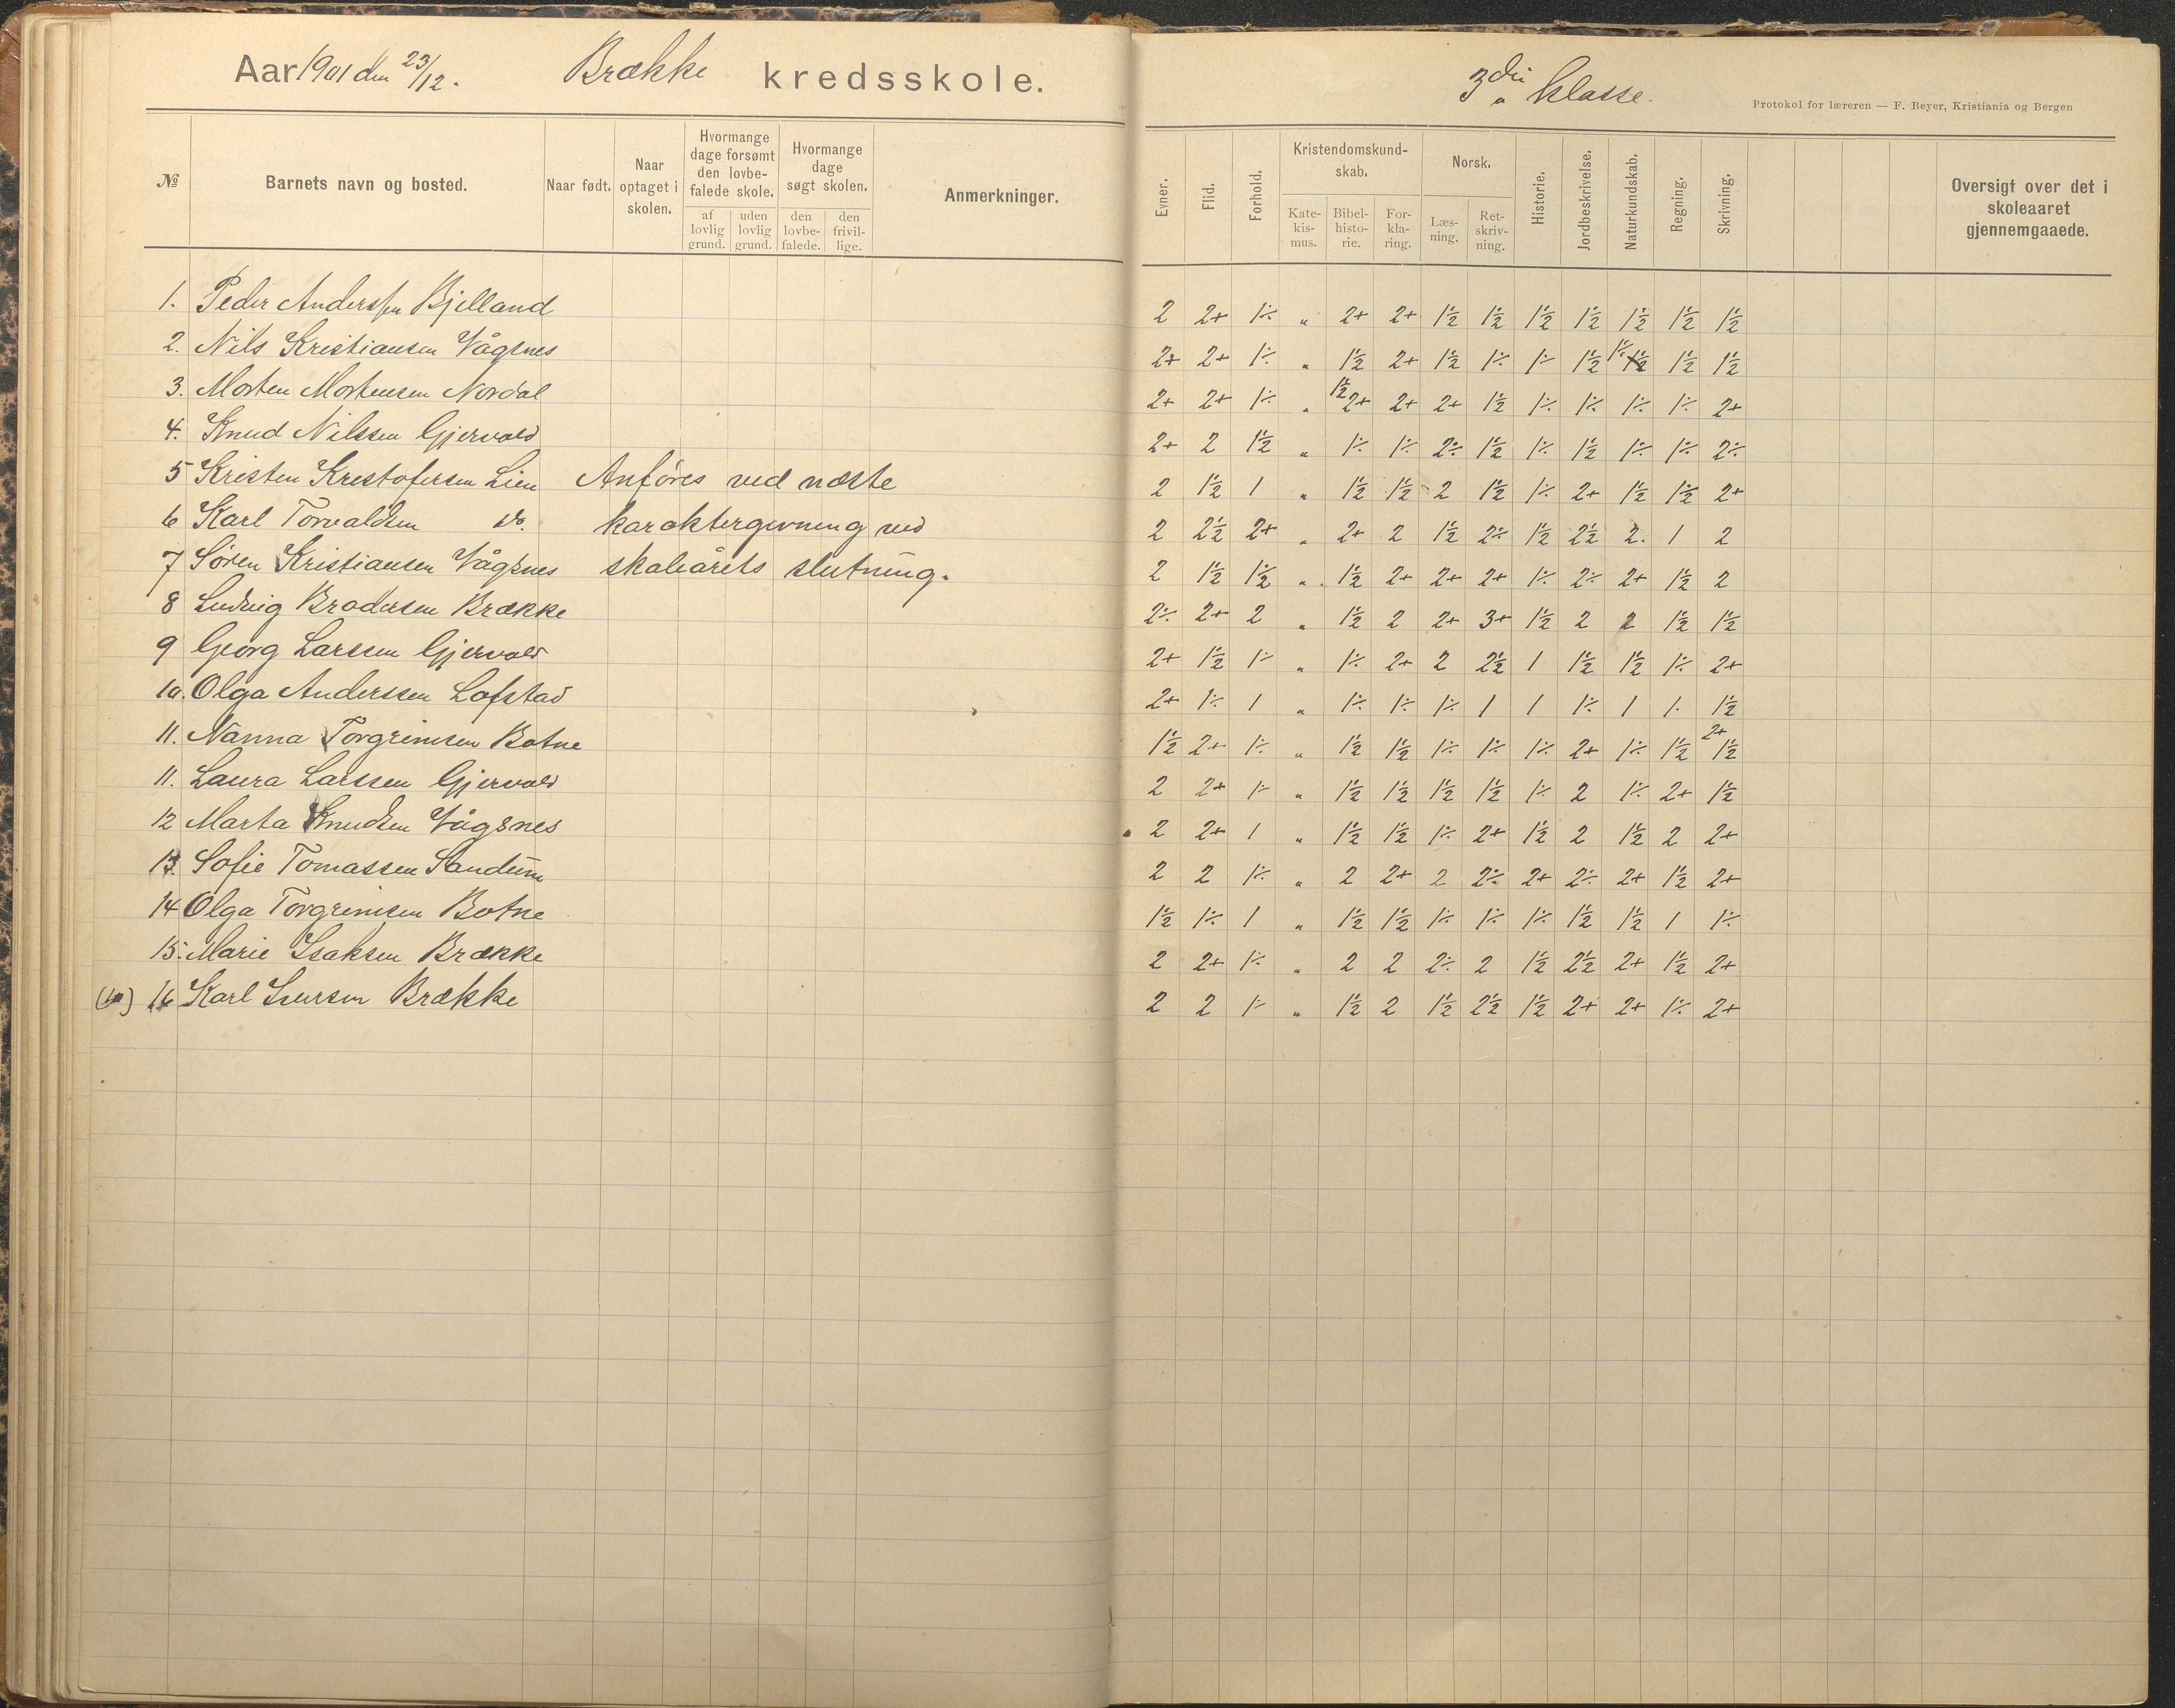 Aar 1901 den 23/12. Brække kredsskole.
№
Barnets navn og bosted.
Naar født.
Naar optaget i skolen.
Hvormange dage forsømt den lovbefalede skole.
af lovlig grund.
uden lovlig grund.
Hvormange dage søgt skolen.
den lovbefalede.
den frivillige.
Anmerkninger.
1. Peder Anderssen Bjelland
2. Nils Kristiansen Vågsnes
3. Morten Mortensen Nordal
4. Knud Nilssen Gjervold
5 Kristen Kristofersen Lien Anføres ved næste
6 Karl Torvaldsen do. karaktergivning ved
7 Søren Kristiansen Vågsnes skoleårets slutning.
8 Ludvig Brodersen Brække
9 Georg Larssen Gjervold
10. Olga Anderssen Lofstad
11. Nanna Torgrimsen Botne
11. Laura Larssen Gjervold
12 Marta Knudsen Vågsnes
13. Sofie Tomassen Sandum
14 Olga Torgrimsen Botne
15. Marie Isaksen Brække
16 Karl Iversen Brække
3die klasse.
Protokol for læreren — F. Beyer, Kristiania og Bergen
Evner.
Flid.
Forhold.
Kristendomskundskab.
Katekismus.
Bibelhistorie.
Forklaring.
Norsk.
Læsning.
Retskrivning.
Historie.
Jordbeskrivelse.
Naturkundskab.
Regning.
Skrivning.
Oversigt over det i skoleaaret gjennemgaaede.
2 2+ 1÷ „ 2+ 2+ 1½ 1½ 1½ 1½ 1½ 1½ 1½
2+ 2+ 1÷ „ 1½ 2+ 1½ 1÷ 1÷ 1½ 1÷ 1½ 1½
2+ 2+ 1÷ „ 1½ 2+ 2+ 2+ 1½ 1÷ 1÷ 1÷ 1÷ 2+
2+ 2 1½ „ 1÷ 1÷ 2÷ 1½ 1÷ 1½ 1÷ 1÷ 2÷
2 1½ 1 „ 1½ 1½ 2 1½ 1÷ 2+ 1½ 1½ 2+
2 2½ 2+ „ 2+ 2 1½ 2÷ 1½ 2½ 2. 1 2
2 1½ 1½ „ 1½ 2+ 2+ 2+ 1÷ 2÷ 2+ 1½ 2
2÷ 2+ 2 „ 1½ 2 2+ 3+ 1½ 2 2 1½ 1½
2+ 1½ 1÷ „ 1÷ 2+ 2 2½ 1 1½ 1½ 1÷ 2+
2+ 1÷ 1 „ 1÷ 1÷ 1÷ 1 1 1÷ 1 1. 1½
1½ 2+ 1÷ „ 1½ 1½ 1÷ 1÷ 1÷ 2+ 1÷ 1½ 2+ 1½
2 2+ 1÷ „ 1½ 1½ 1½ 1½ 1÷ 2 1÷ 2+ 1½
2 2+ 1 „ 1½ 1½ 1÷ 2+ 1½ 2 1½ 2 2+
2 2 1÷ „ 2 2+ 2 2÷ 2+ 2÷ 2+ 1½ 2+
1½ 1÷ 1 „ 1½ 1½ 1÷ 1÷ 1÷ 1½ 1½ 1 1÷
2 2+ 1÷ „ 2 2 2÷ 2 1½ 2½ 2+ 1½ 2+
2 2 1÷ „ 1½ 2 1½ 2½ 1½ 2+ 2+ 1÷ 2+